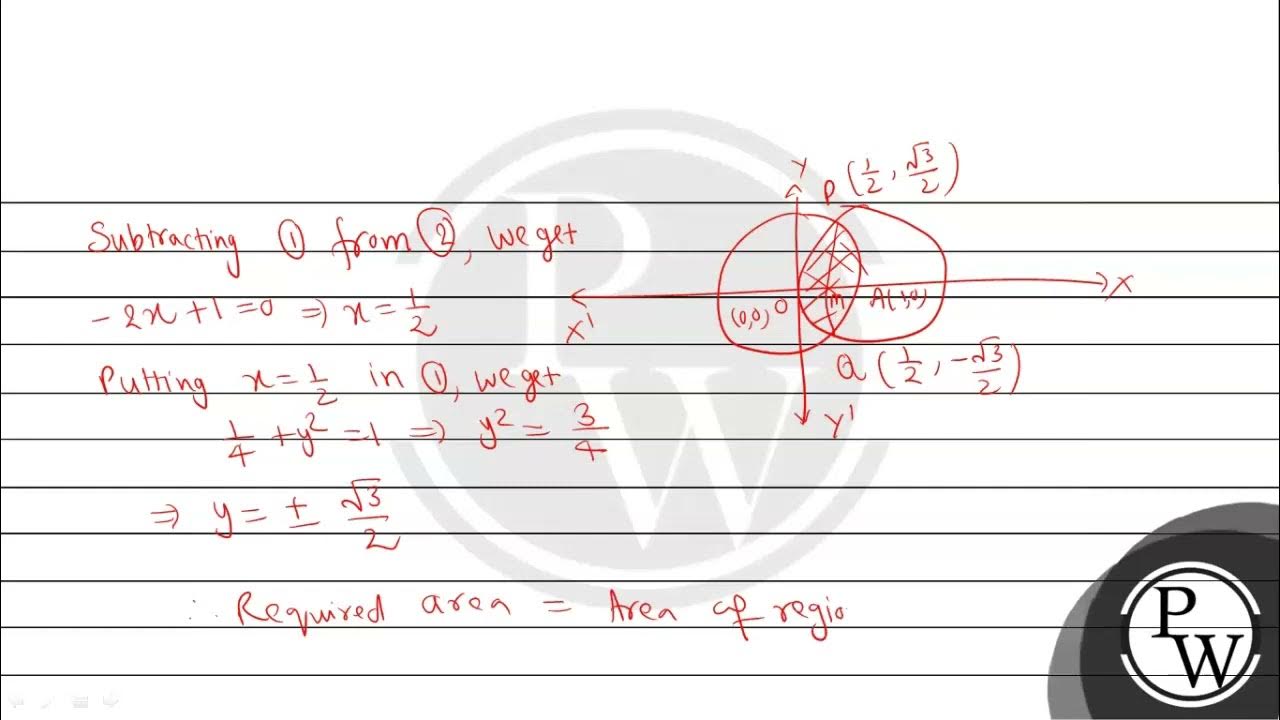 Subtracting ① from ②, we get
-2x+1=0 ⇒ x=1/2
Putting x=1/2 in ①, we get
1/4 + y² = 1 ⇒ y² = 3/4
⇒ y = ± √3/2
∴ Required area = Area of regio
Y
P (1/2, √3/2)
X'
(0,0) O
m
A(1,0)
X
Q (1/2, -√3/2)
Y'
PW
PW